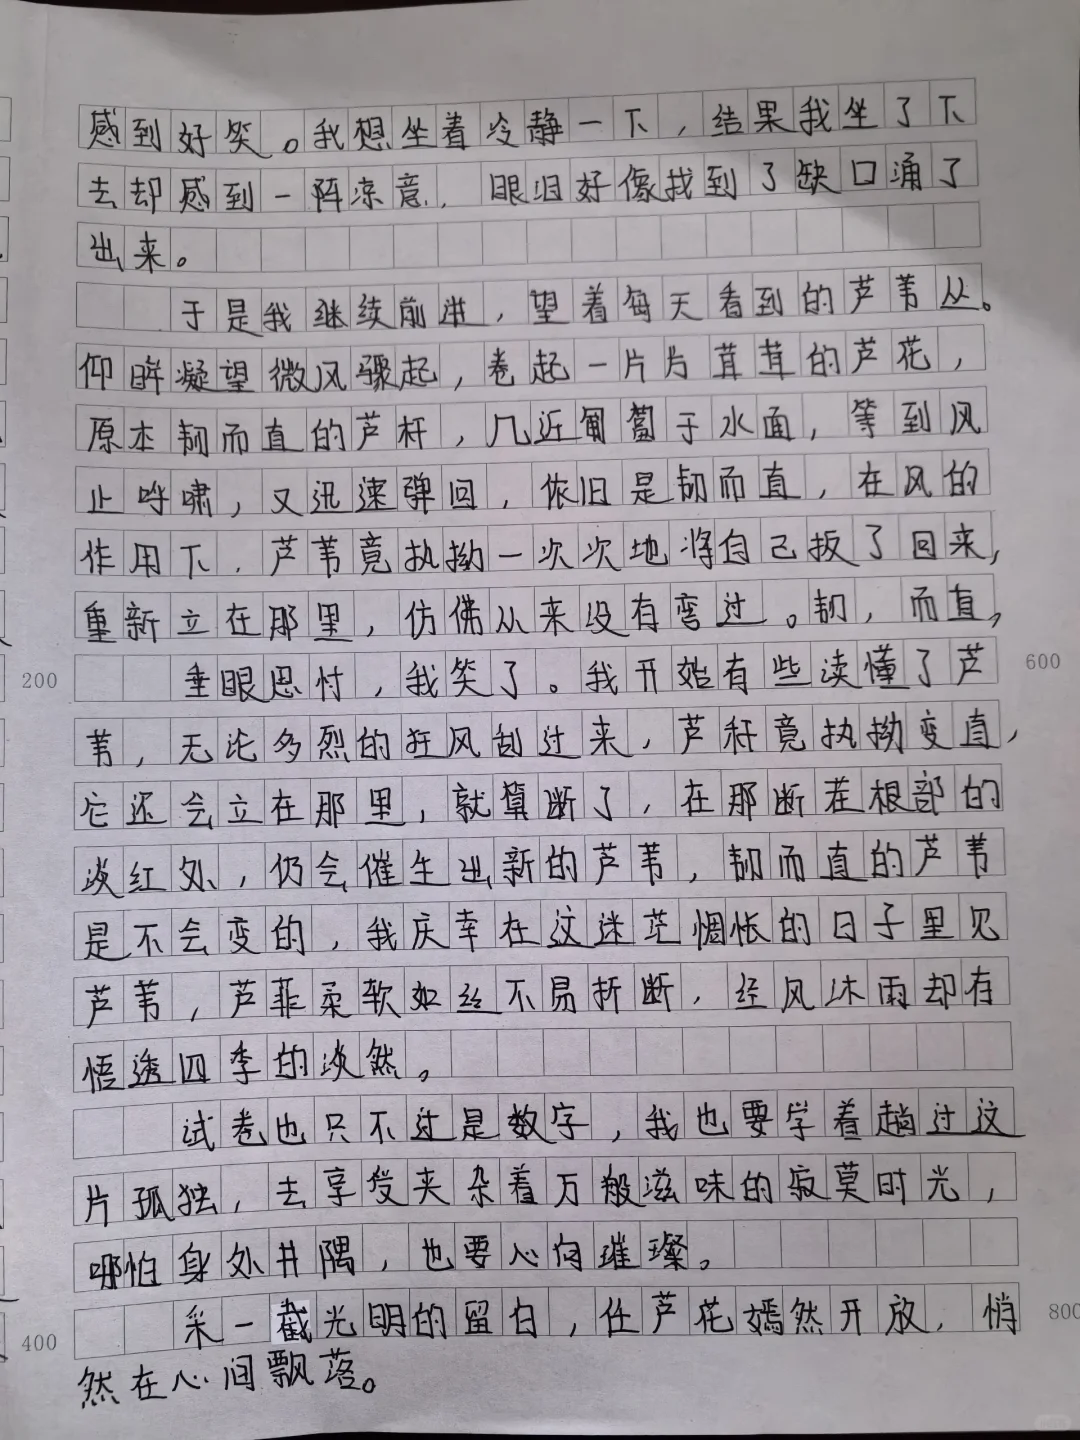 感到好笑。我想坐着冷静一下，结果我坐了下
去却感到一阵凉意，眼泪好像找到了缺口涌了
出来。
于是我继续前进，望着每天看到的芦苇丛。
仰眸凝望微风骤起，卷起一片片茸茸的芦花，
原本韧而直的芦杆，几近匍匐于水面，等到风
止呼啸，又迅速弹回，依旧是韧而直，在风的
作用下，芦苇竟执拗一次次地将自己扳了回来，
重新立在那里，仿佛从来没有弯过。韧，而直，
垂眼思忖，我笑了。我开始有些读懂了芦
200
600
苇，无论多烈的狂风刮过来，芦秆竟执拗变直，
它还会立在那里，就算断了，在那断茬根部的
淡红处，仍会催生出新的芦苇，韧而直的芦苇
是不会变的，我庆幸在这迷茫惆怅的日子里见
芦苇，芦菲柔软如丝不易折断，经风沐雨却有
悟透四季的淡然。
试卷也只不过是数字，我也要学着趟过这
片孤独，去享受夹杂着万般滋味的寂莫时光，
哪怕身处井隅，也要心向璀璨。
采一截光明的留白，任芦花嫣然开放，悄
400
800
然在心间飘落。